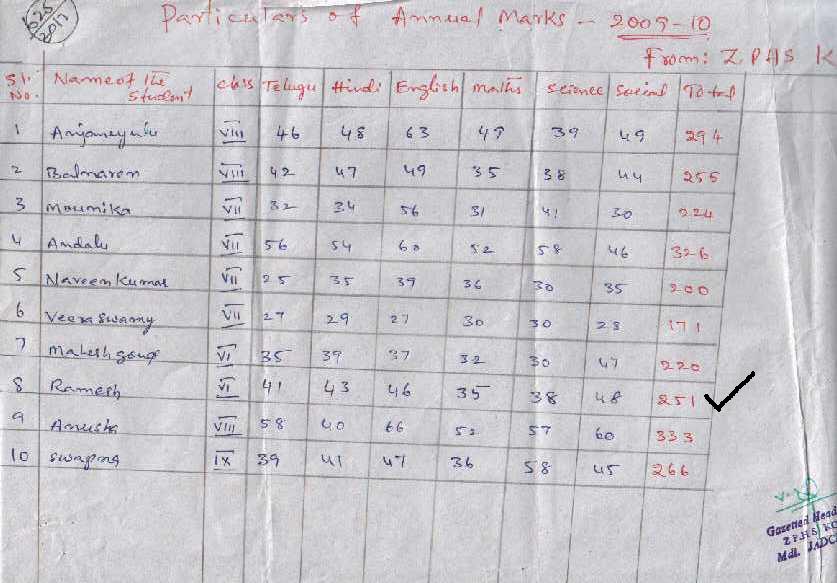 625
2017
Particulars of Annual Marks - 2009-10
From: ZPHS K
S.l. No. Name of the Student Class Telugu Hindi English maths Science Social Total
1 Anjaneyulu VIII 46 48 63 49 39 49 294
2 Balnaren VIII 42 47 49 35 38 44 255
3 Mounika VII 32 34 56 31 41 30 224
4 Andalu VII 56 54 60 52 58 46 326
5 Naveen Kumar VII 25 35 39 36 30 35 200
6 Veera Swamy VII 27 29 27 30 30 28 171
7 Mahesh goud VI 35 39 37 32 30 47 220
8 Ramesh VI 41 43 46 35 38 48 251
9 Anusha VIII 58 40 66 52 57 60 333
10 Swapna IX 39 41 47 36 58 45 266
Gazetted Head
Z.P.H.S. KO
Mdl. JADC